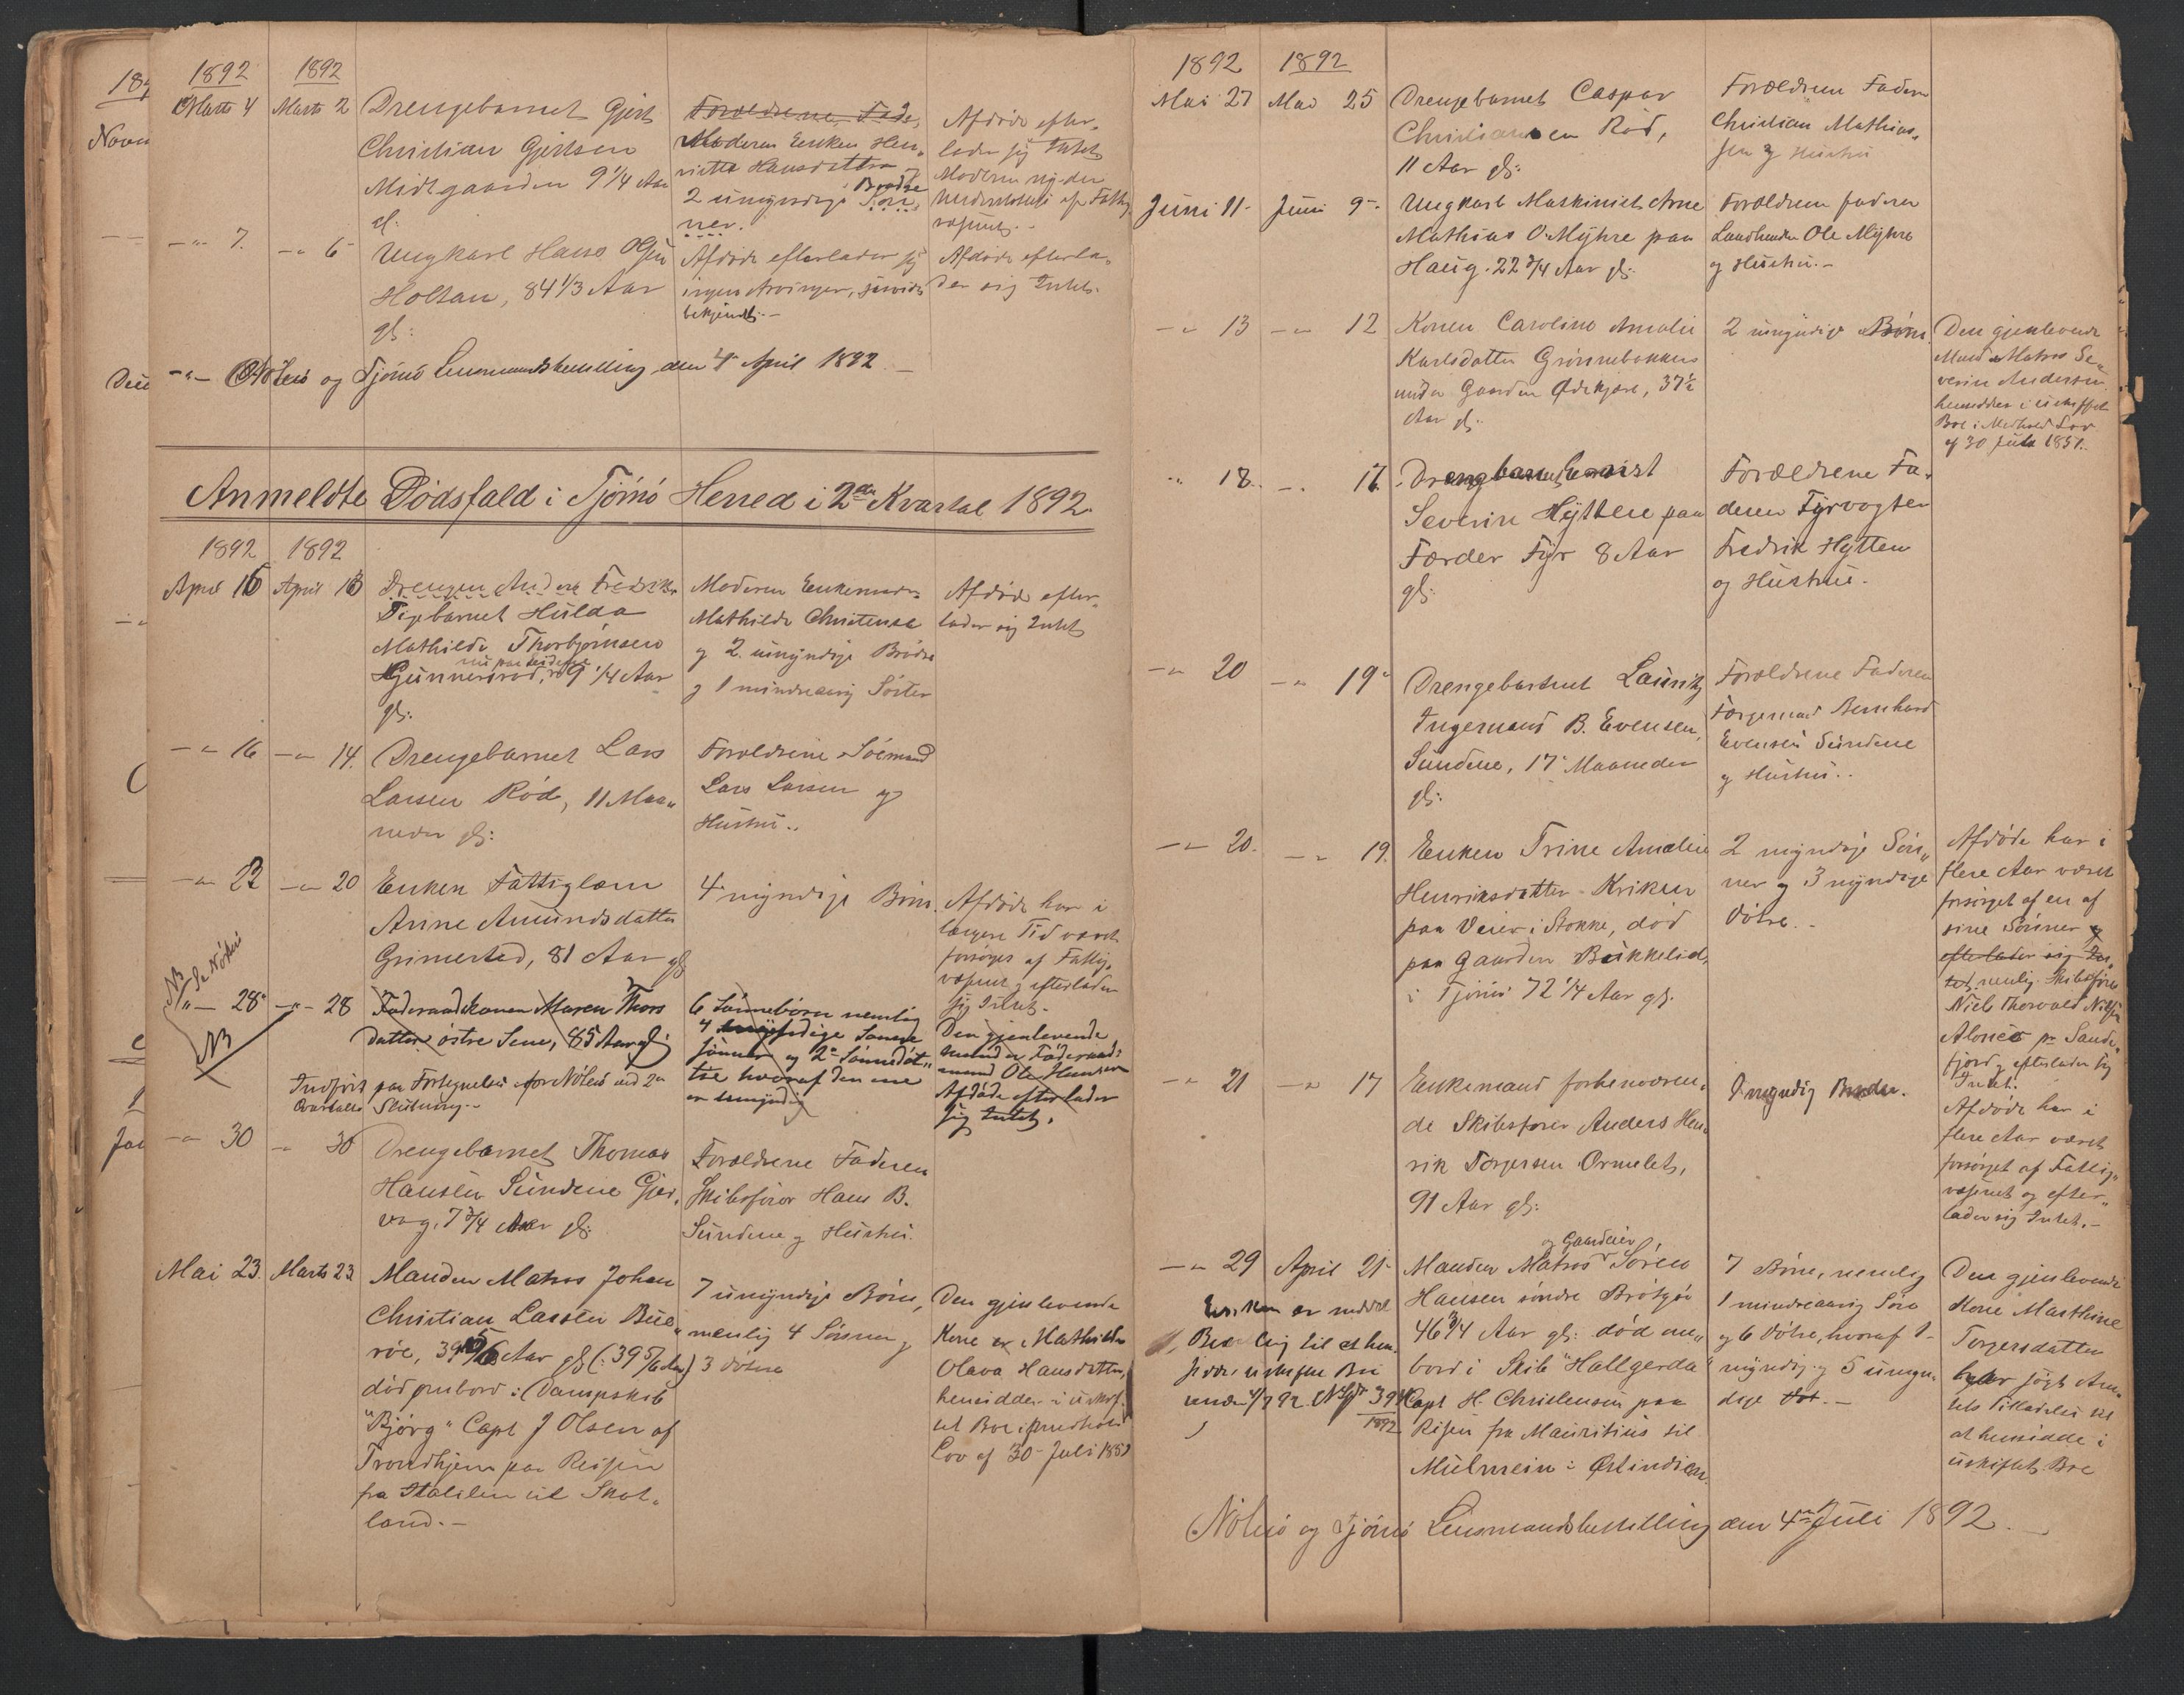 1892
1892
Marts 4
Marts 2
Drengebarnet Gjert
Christian Gjertsen
Midtgaarden 9 1/4 Aar
gl:
Forældrene, Fade,
Moderen Enken Hen„
riette Hansdatter
2 umyndige Brødre
Søn„
ner.
Afdøde efter„
lader sig Intet
Moderen nyder
Understøttelse af Fattig
væsenet.
-"- 7.
-"- 6
Ungkarl Hans Olsen
Holtan, 84 1/3 Aar
gl:
Afdøde efterlader sig
ingen Arvinger, saavidt
bekjendt.-
Afdøde efterla„
der sig Intet.
Nøterø og Tjømø Lensmandsbestilling den 4 April 1892.
Anmeldte Dødsfald i Tjømø Herred i 2det Kvartal 1892.
1892
1892
April 16
April 13
Drengen Anders Fredrik
Pigebarnet Hulda
Mathilde Thorbjørnsen
Gunnersrød, 9 1/4 Aar
gl:
Moderen Enkemadm
Mathilde Christensen
og 2 umyndige Brødre
og 1 mindreaarig Søster
Afdøde efter„
lader sig Intet
-"- 16
-"- 14.
Drengebarnet Lars
Larsen Rød, 11 Maa„
neder gl:
Forældrene Sømand
Lars Larsen og
Hustru..
-"- 22
-"- 20
Enken Fattiglem
Anne Amundsdatter
Grimestad, 81 Aar gl
4 myndige Børn.
Afdøde har i
længere Tid været
forsørget af Fattig„
væsenet og efterlader
sig Intet.
NB
Se Nøterø
-"- 28
-"- 28
Føderaadskonen Maren Thors
datter østre Sene, 85 Aar gl
6 Sønnebørn nemlig
4 myndige Sønne
sønner og 2 Sønnedøt„
tre hvoraf den ene
er umyndig
Den gjenlevende
Mand er Føderaads
mand Ole Hansen
Afdøde efterlader
sig Intet.
NB
Indført paa Fortegnelsen for Nøterø ved 2det
Qvartals Slutning.-
-"- 30
-"- 30
Drengebarnet Thomas
Hansen Sundene Gjer„
vaag, 7 3/4 Aar gl:
Forældrene Faderen
Skibsfører Hans B.
Sundene og Hustru.
Mai 23.
Marts 23
Manden Matros Johan
Christian Larsen Bue„
røe, 39 5/6 Aar gl (: 39 5/6 Aar)
død ombord i Dampskib
"Bjørg" Capt J Olsen af
Trondhjem paa Reisen
fra Italien til Skot„
land.-
7 umyndige Børn,
nemlig 4 Sønner og
3 døtre
Den gjenlevende
Kone er Mathilde
Olava Hansdatter,
hensidder i uskif„
tet Boe i Medhold
Lov af 30 Juli 1851
1892
1892
Mai 27
Mai 25
Drengebarnet Caspar
Christiansen Rød,
11 Aar gl:
Forældrene Faderen
Christian Mathias„
sen og Hustru
Juni 11.
Juni 9.
Ungkarl Maskinist Arne
Mathias O. Myhre paa
Haug. 22 3/4 Aar gl.
Forældrene faderen
Landhandler Ole Myhre
og Hustru.-
-"- 13
-"- 12
Konen Caroline Amalie
Karlsdatter Grønnebakken
under Gaarden Ødekjære, 37 1/2
Aar gl.
2 umyndige Børn.
Den gjenlevende
Mand Matros Se„
verin Andersen
hensidder i uskiftet
Boe i Medhold Lov
af 30 Juli 1851.
-"- 18.
-"- 16.
Drengebarnet
Severin Hytten paa
Færder Fyr 8 Aar
gl:
Forældrene Fa„
deren Fyrvogter
Fredrik Hytten
og Hustru.
-"- 20
-"- 19
Drengebarnet Lauritz
Ingemand B. Evensen,
Sundene, 17 Maaneder
gl:
Forældrene Faderen
Færgemand Bernhard
Evensen Sundene
og Hustru..
-"- 20.
-"- 19.
Enken Trine Amalie
Henriksdatter Kriken
paa Veier i Stokke, død
paa Gaarden Bukkelid,
i Tjømø 72 1/4 Aar gl.
2 myndige Søn„
ner og 3 myndige
døtre..
Afdøde har i
flere Aar været
forsørget af en af
sine Sønner og
efterlader sig In„
tet nemlig Skibsfører
Niels Thorvald Nilsen
pr Sande„
fjord og efterlader sig
Intet.
-"- 21
-"- 17
Enkemand forhenværen„
de Skibsfører Anders Hen„
rik Torgersen Ormelet,
91 Aar gl:
1 myndig Broder.
Afdøde har i
flere Aar været
forsørget af Fattig„
væsenet og efter„
lader sig Intet.-
-"- 29
April 21
Manden Matros og Gaardeier Søren
Hansen søndre Brøtsø
46 3/4 Aar gl: død om„
bord i Skib "Hallgerda"
Capt H. Christensen paa
Reisen fra Mauritius til
Mulmein i Ostindien.
7 Børn, nemlig
1 mindreaarig Søn
og 6 døtre, hvoraf 1
myndig og 5 umyn„
dige Døt.-
Den gjenlevende
Kone Marthine
Torgersdatter
søgt Am„
tets Tilladelse til
at hensidde i
uskiftet Boe
Enken er meddelt
Bevilling til at hen„
sidde i uskiftet Bo
1892
Nøterø og Tjømø Lensmandsbestilling den 4de Juli 1892.